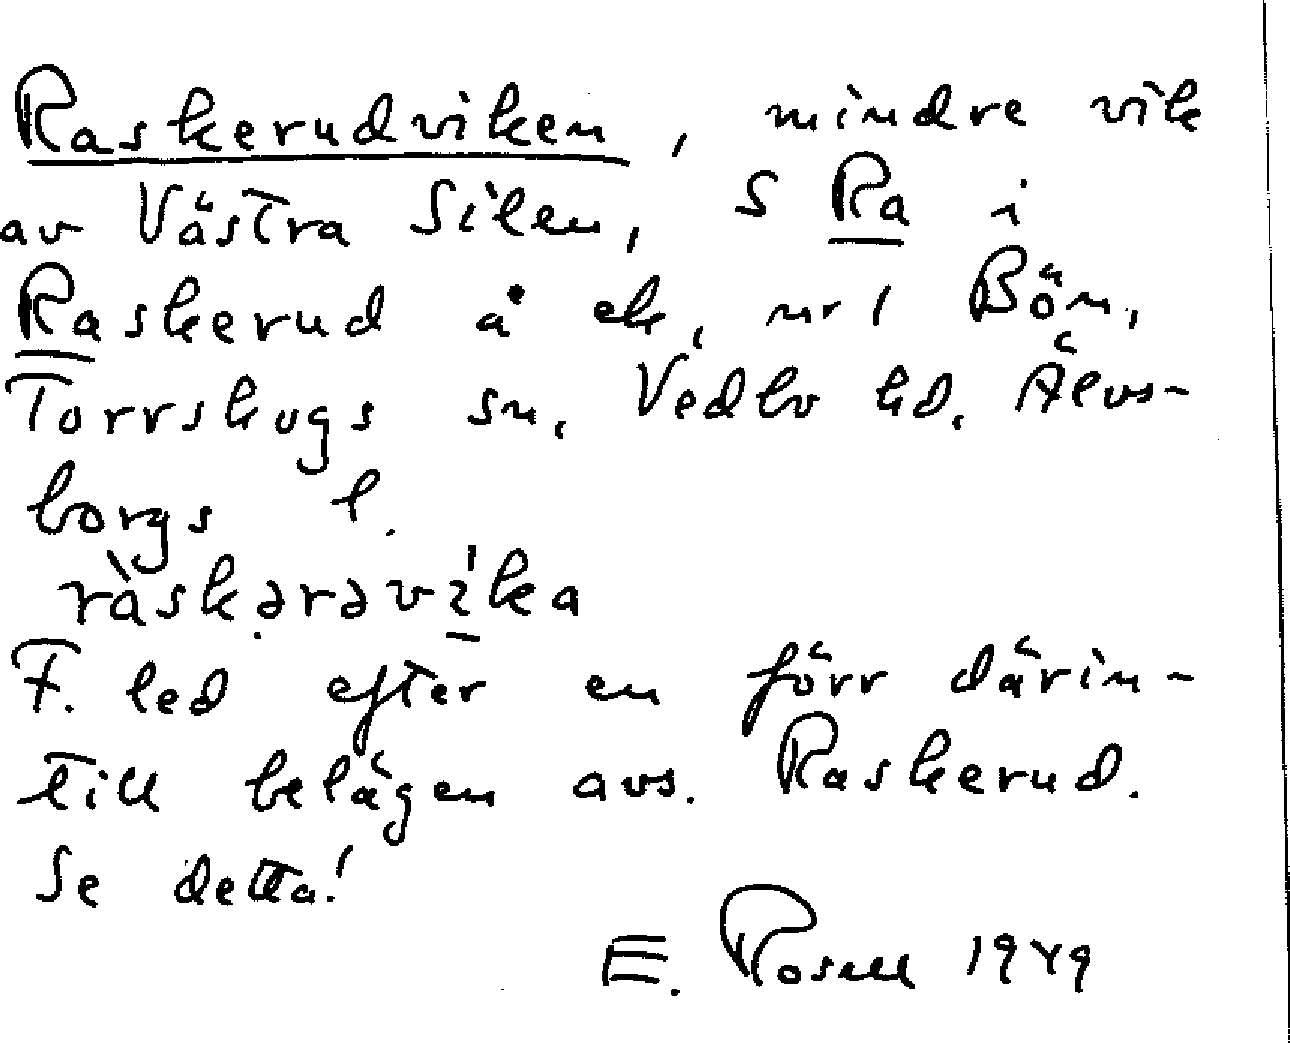 Raskerudviken, mindre vik
av Västra Silen, S Ra i
Raskerud å ek, nr 1 Bön,
Torrskogs sn, Vedbo hd. Älvs-
borgs l.
ràskərəvíka
F. led efter en förr därin-
till belägen avs. Raskerud.
Se detta!
E. Rosell 1949